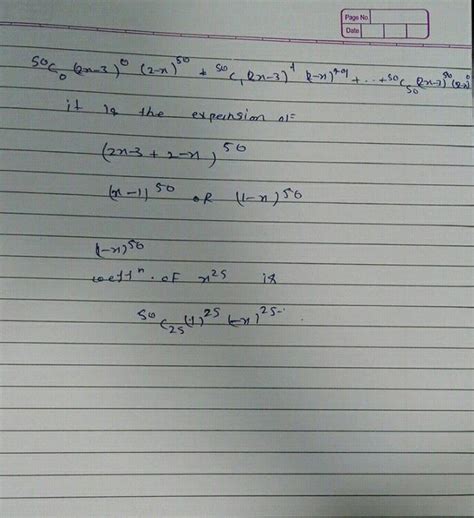 Page No.
Date
⁵⁰C₀ (2x-3)⁰ (2-x)⁵⁰ + ⁵⁰C₁ (2x-3)¹ (2-x)⁴⁹ + .. + ⁵⁰C₅₀ (2x-3)⁵⁰ (2-x)⁰
it is the expansion of
(2x-3 + 2-x)⁵⁰
(x-1)⁵⁰ OR (1-x)⁵⁰
(1-x)⁵⁰
coeffⁿ. of x²⁵ is
⁵⁰C₂₅ (1)²⁵ (-x)²⁵